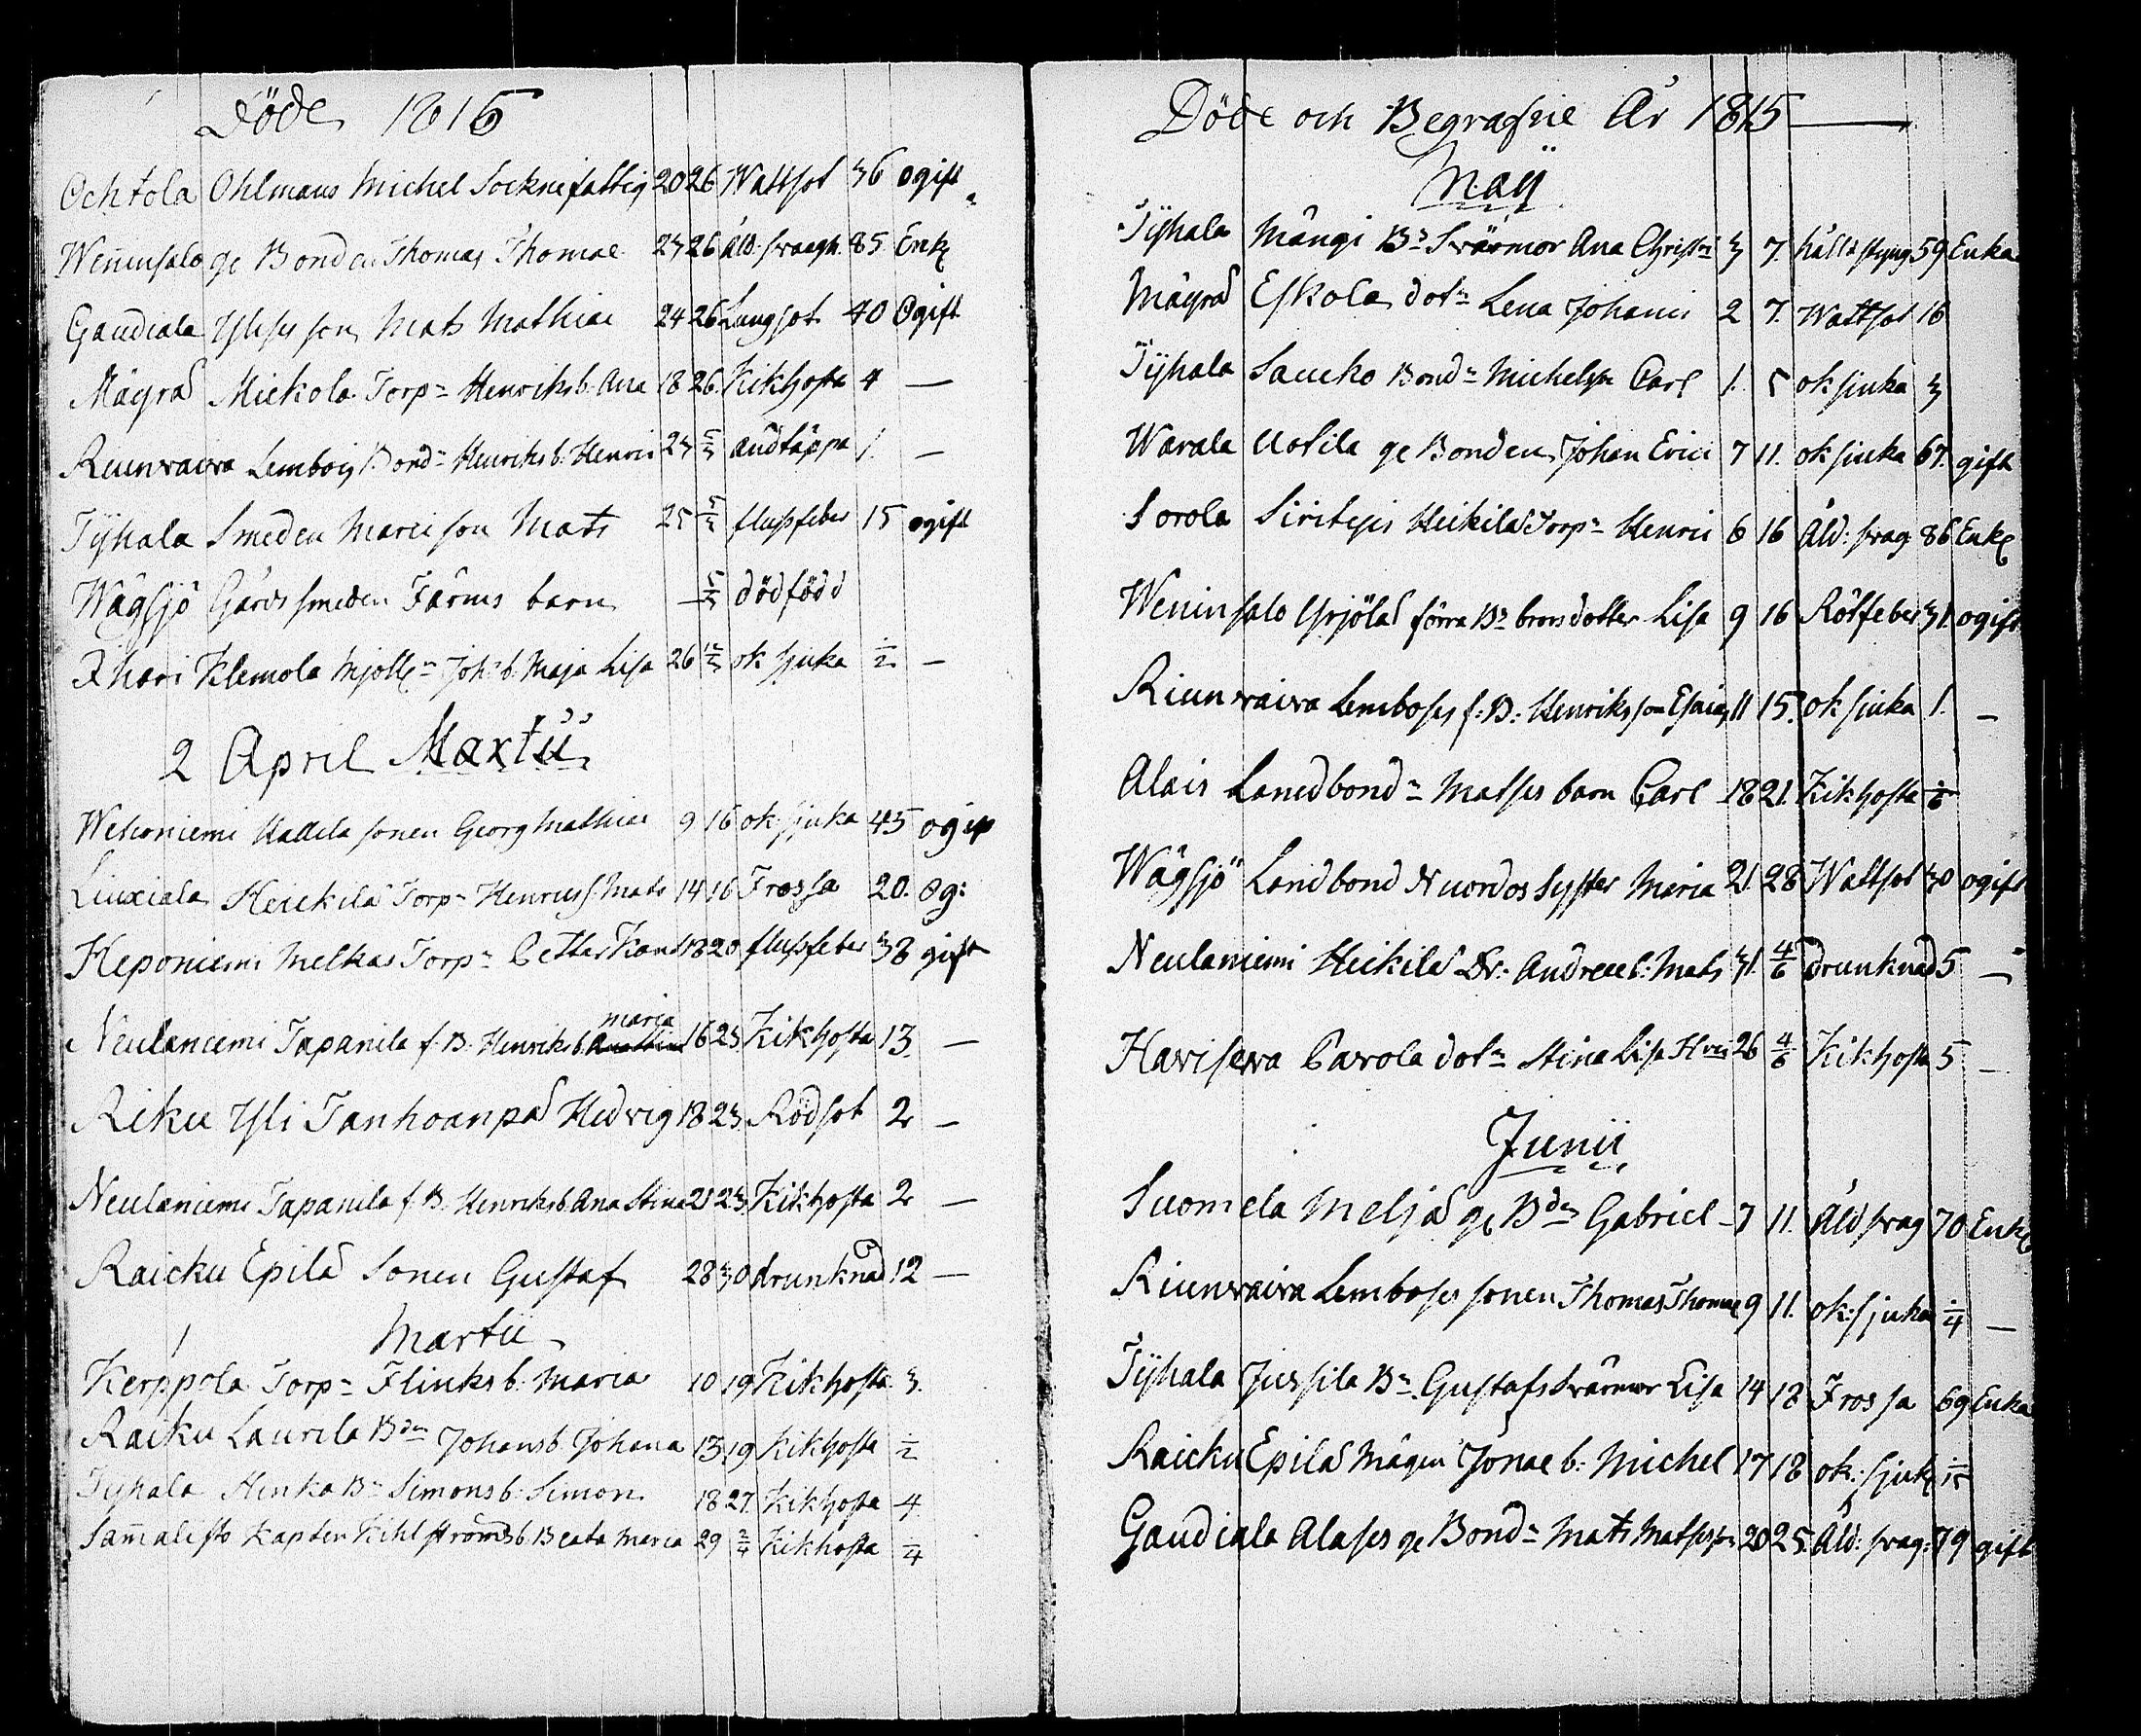 Döde 1815
Ochtola Ohlmans Michel Socknefattig 20 26 Wattsot 36 ogift
Weninsalo ge Bonden Thomas Thomae 23 26 Åld. swagh. 85 Enkl
Gaudiala Ylises son Mats Mathiae 24 26 Lungsot 40 Ogift
Mäyrä Mickola Torp= Henriks b. Ana 18 26. Kikhosta 4 —
Riunvaiva Lembois Bond= Henriks b. Henric 23 5/3 andtäppa 1. —
Tyhala Smeden Marci son Mats 25 5/3 flussfeber 15 ogift
Wågsjö Gårds smeden Färms barn — 5/3 dödfödd
Ihari Klemola Mjölk= Joh: b. Maja Lisa 26 12/3 ok sjuka 1/2 —
2 April Martii
Wehoniemi Uotila sonen Georg Mathiae 9 16 ok: sjuka 45 ogift
Liuxiala Heickilä Torp= Henrics s. Mats 14 16 Frossa 20. Og:
Heponiemi Melkas Torp= Petter 18 20 flussfeber 38 gift
Neulaniemi Tapanila f. B. Henriks b. maria 16 23. Kikhosta 13. —
Reku Yli Tanhoanpä Hedvig 18 23. Rödsot 2 —
Neulaniemi Tapanila f. B. Henriks b. Ana Stina 21 23. Kikhosta 2 —
Raicku Epilä Sonen Gustaf 28 30 drunknad 12 —
1 Martii
Kerppola Torp= Flinks b. Maria 10 19 Kikhosta 3.
Raiku Laurila Bdn Johans b. Johana 13 19 Kikhosta 1/2
Tyhala Henka B= Simons b. Simon 18 27. Kikhosta 4
Sam̄alisto Kapten Kihlströms b. Beata Maria 29 2/4 Kikhosta 1/4
Döde och Begrafne År 1815 —
Maij
Tyhala Mångi Bs Svärmor Ana Christi 3 7. håll o styng 59 Enka
Mäyrä Eskola dotn Lena Johani 2 7. Wattsot 16
Tyhala Saucko Bond= Michels son Carl 1. 5 ok sjuka 3
Warala Uotila ge Bonden Johan Erici 7 11. ok sjuka 67. gift
Sorola Heikilä Torp= Henric 6 16 Åld: swag 86 Enkl
Weninsalo Yrjölä förra Bs brors dotter Lisa 9 16 Rötfeber 31. ogift
Riunvaiva Lemboses f: B: Henriks son Esaias 11 15. ok sjuka 1. —
Alais Landbond= Matses barn Carl 18 21. Kikhosta 1/6
Wågsjö Landbond Nuordos Syster Maria 21. 28 Wattsot 30 ogift
Neulaniemi Heikilä Dr: Andreae b: Mats 31. 4/6 drunknad 5 —
Havisewa Parola dot= Stina Lisa 26 4/6 Kikhosta 5 —
Junii
Suomela Meljä ge Bdn Gabriel 7 11. Åld swag 70 Enkl
Riunvaiva Lemboses sonen Thomas Thomae 9 11. ok: sjuka 1/4 —
Tyhala Jussila B= Gustafs Svärmor Lisa 14 18 Frossa 69 Enka
Raicku Epilä Mågen Jonae b: Michel 17 18 ok: sjuk
Gaudiala Alases ge Bond= Mats Matsson 20 25. Åld: swag: 79 gift